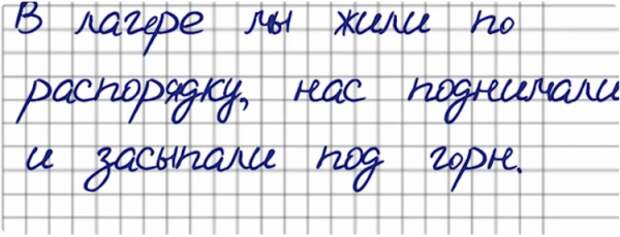 В лагере мы жили по
распорядку, нас поднимали
и засыпали под горн.